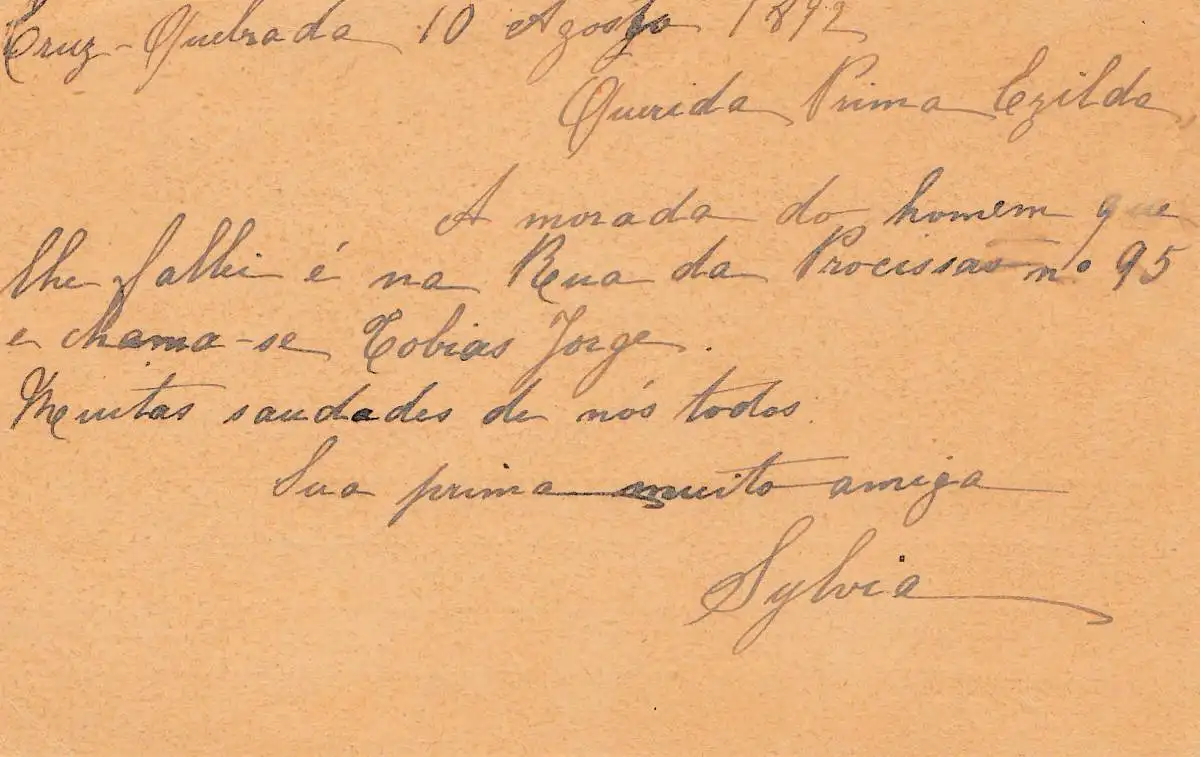 Cruz-Quebrada 10 Agosto 1892
Querida Prima Ezilda,
A morada do homem que
lhe fallei é na Rua da Procissão nº 95
e chama-se Tobias Jorge.
Muitas saudades de nós todos.
Sua prima muito amiga
Sylvia